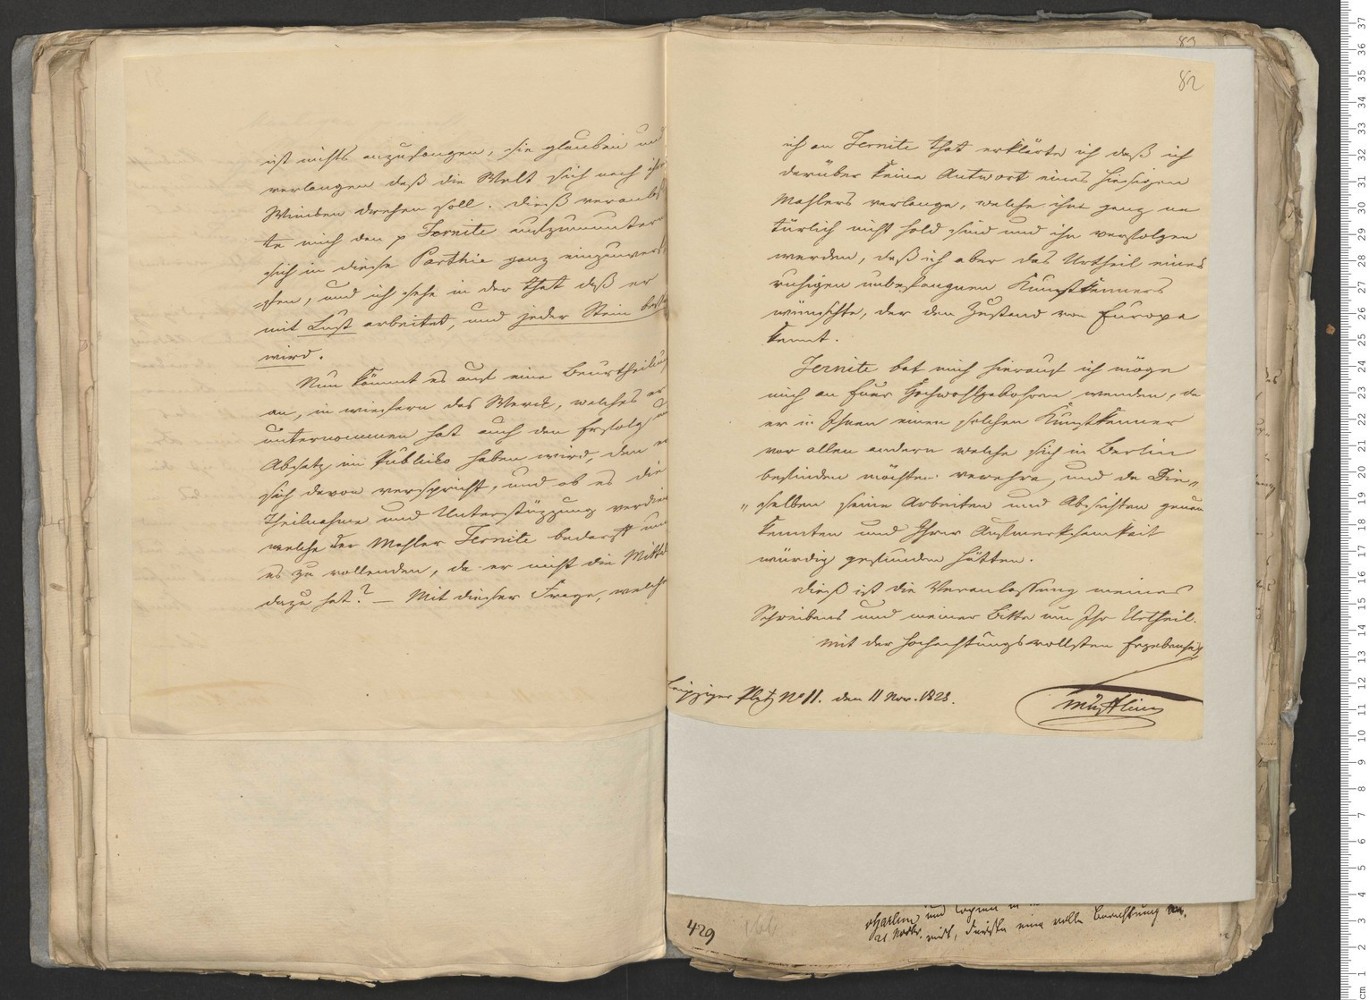 ist nichts anzufangen, sie glauben und
verlangen daß die Welt sich nach ihren
Winken drehen soll. Dieß veranlaß
te mich den p Ternite aufzumuntern
sich in diese Parthie ganz einzuwer
fen, und ich sehe in der That daß er
mit Lust arbeitet, und jeder Stein
wird.
Nun kömmt es auf eine Beurtheilung
an, in wiefern das Werck, welches er
unternommen hat auch den Erfolg und
Absatz im Publiko haben wird, den er
sich davon verspricht, und ob es die
Theilnahme und Unterstüzzung verdient
welche der Mahler Ternite bedarf um
es zu vollenden, da er nicht die Mittel
dazu hat? — Mit dieser Frage, welche
82
ich an Ternite that erklärte ich daß ich
darüber keine Antwort eines hiesigen
Mahlers verlange, welche ihm ganz na
türlich nicht hold sind und ihn verfolgen
werden, daß ich aber das Urtheil eines
ruhigen unbefangnen Kunstkenners
wünschte, der den Zustand von Europa
kennt.
Ternite bat mich hierauf ich möge
mich an Euer Hochwohlgebohren wenden, da
er in Ihnen einen solchen Kunstkenner
vor allen andern welche sich in Berlin
befinden möchten verehre, und da Die„
„selben seine Arbeiten und Absichten genau
kennten und Ihrer Aufmerksamkeit
würdig gefunden hätten.
Dieß ist die Veranlassung meines
Schreibens und meiner Bitte um Ihr Urtheil.
Mit der hochachtungsvollsten Ergebenheit
Leipziger Platz No 11. den 11 Nov. 1828.
Müffling
429
166
und
21 Novbr. eine